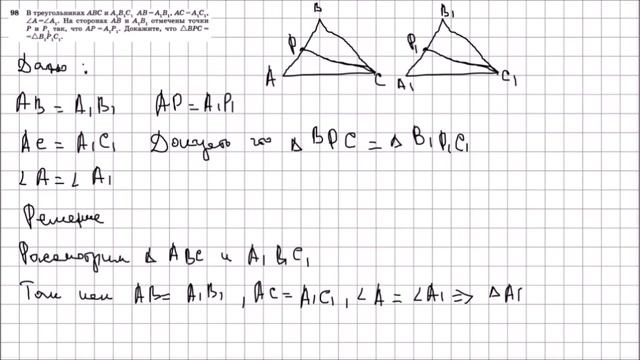 98 В треугольниках ABC и A₁B₁C₁ AB=A₁B₁, AC=A₁C₁,
∠A=∠A₁. На сторонах AB и A₁B₁ отмечены точки
P и P₁ так, что AP=A₁P₁. Докажите, что △BPC=
=△B₁P₁C₁.
B B₁
P P₁
A C A₁ C₁
Дано :
AB = A₁B₁ AP = A₁P₁
AC = A₁C₁ Доказать что △ BPC = △ B₁P₁C₁
∠A = ∠A₁
Решение
Рассмотрим △ ABC и A₁B₁C₁
Так как AB = A₁B₁ , AC = A₁C₁ , ∠A = ∠A₁ ⇒ △ A